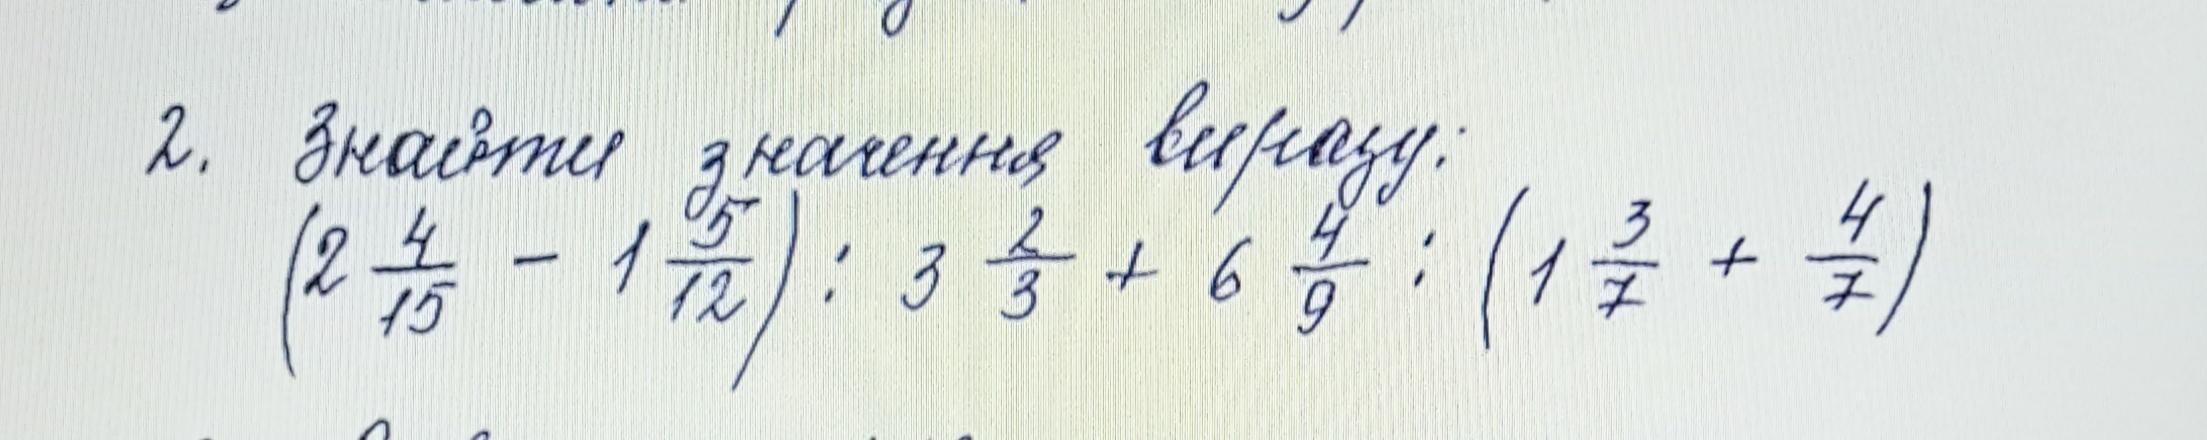 2. Знайти значення виразу:
(2 4/15 - 1 5/12) : 3 2/3 + 6 4/9 : (1 3/7 + 4/7)